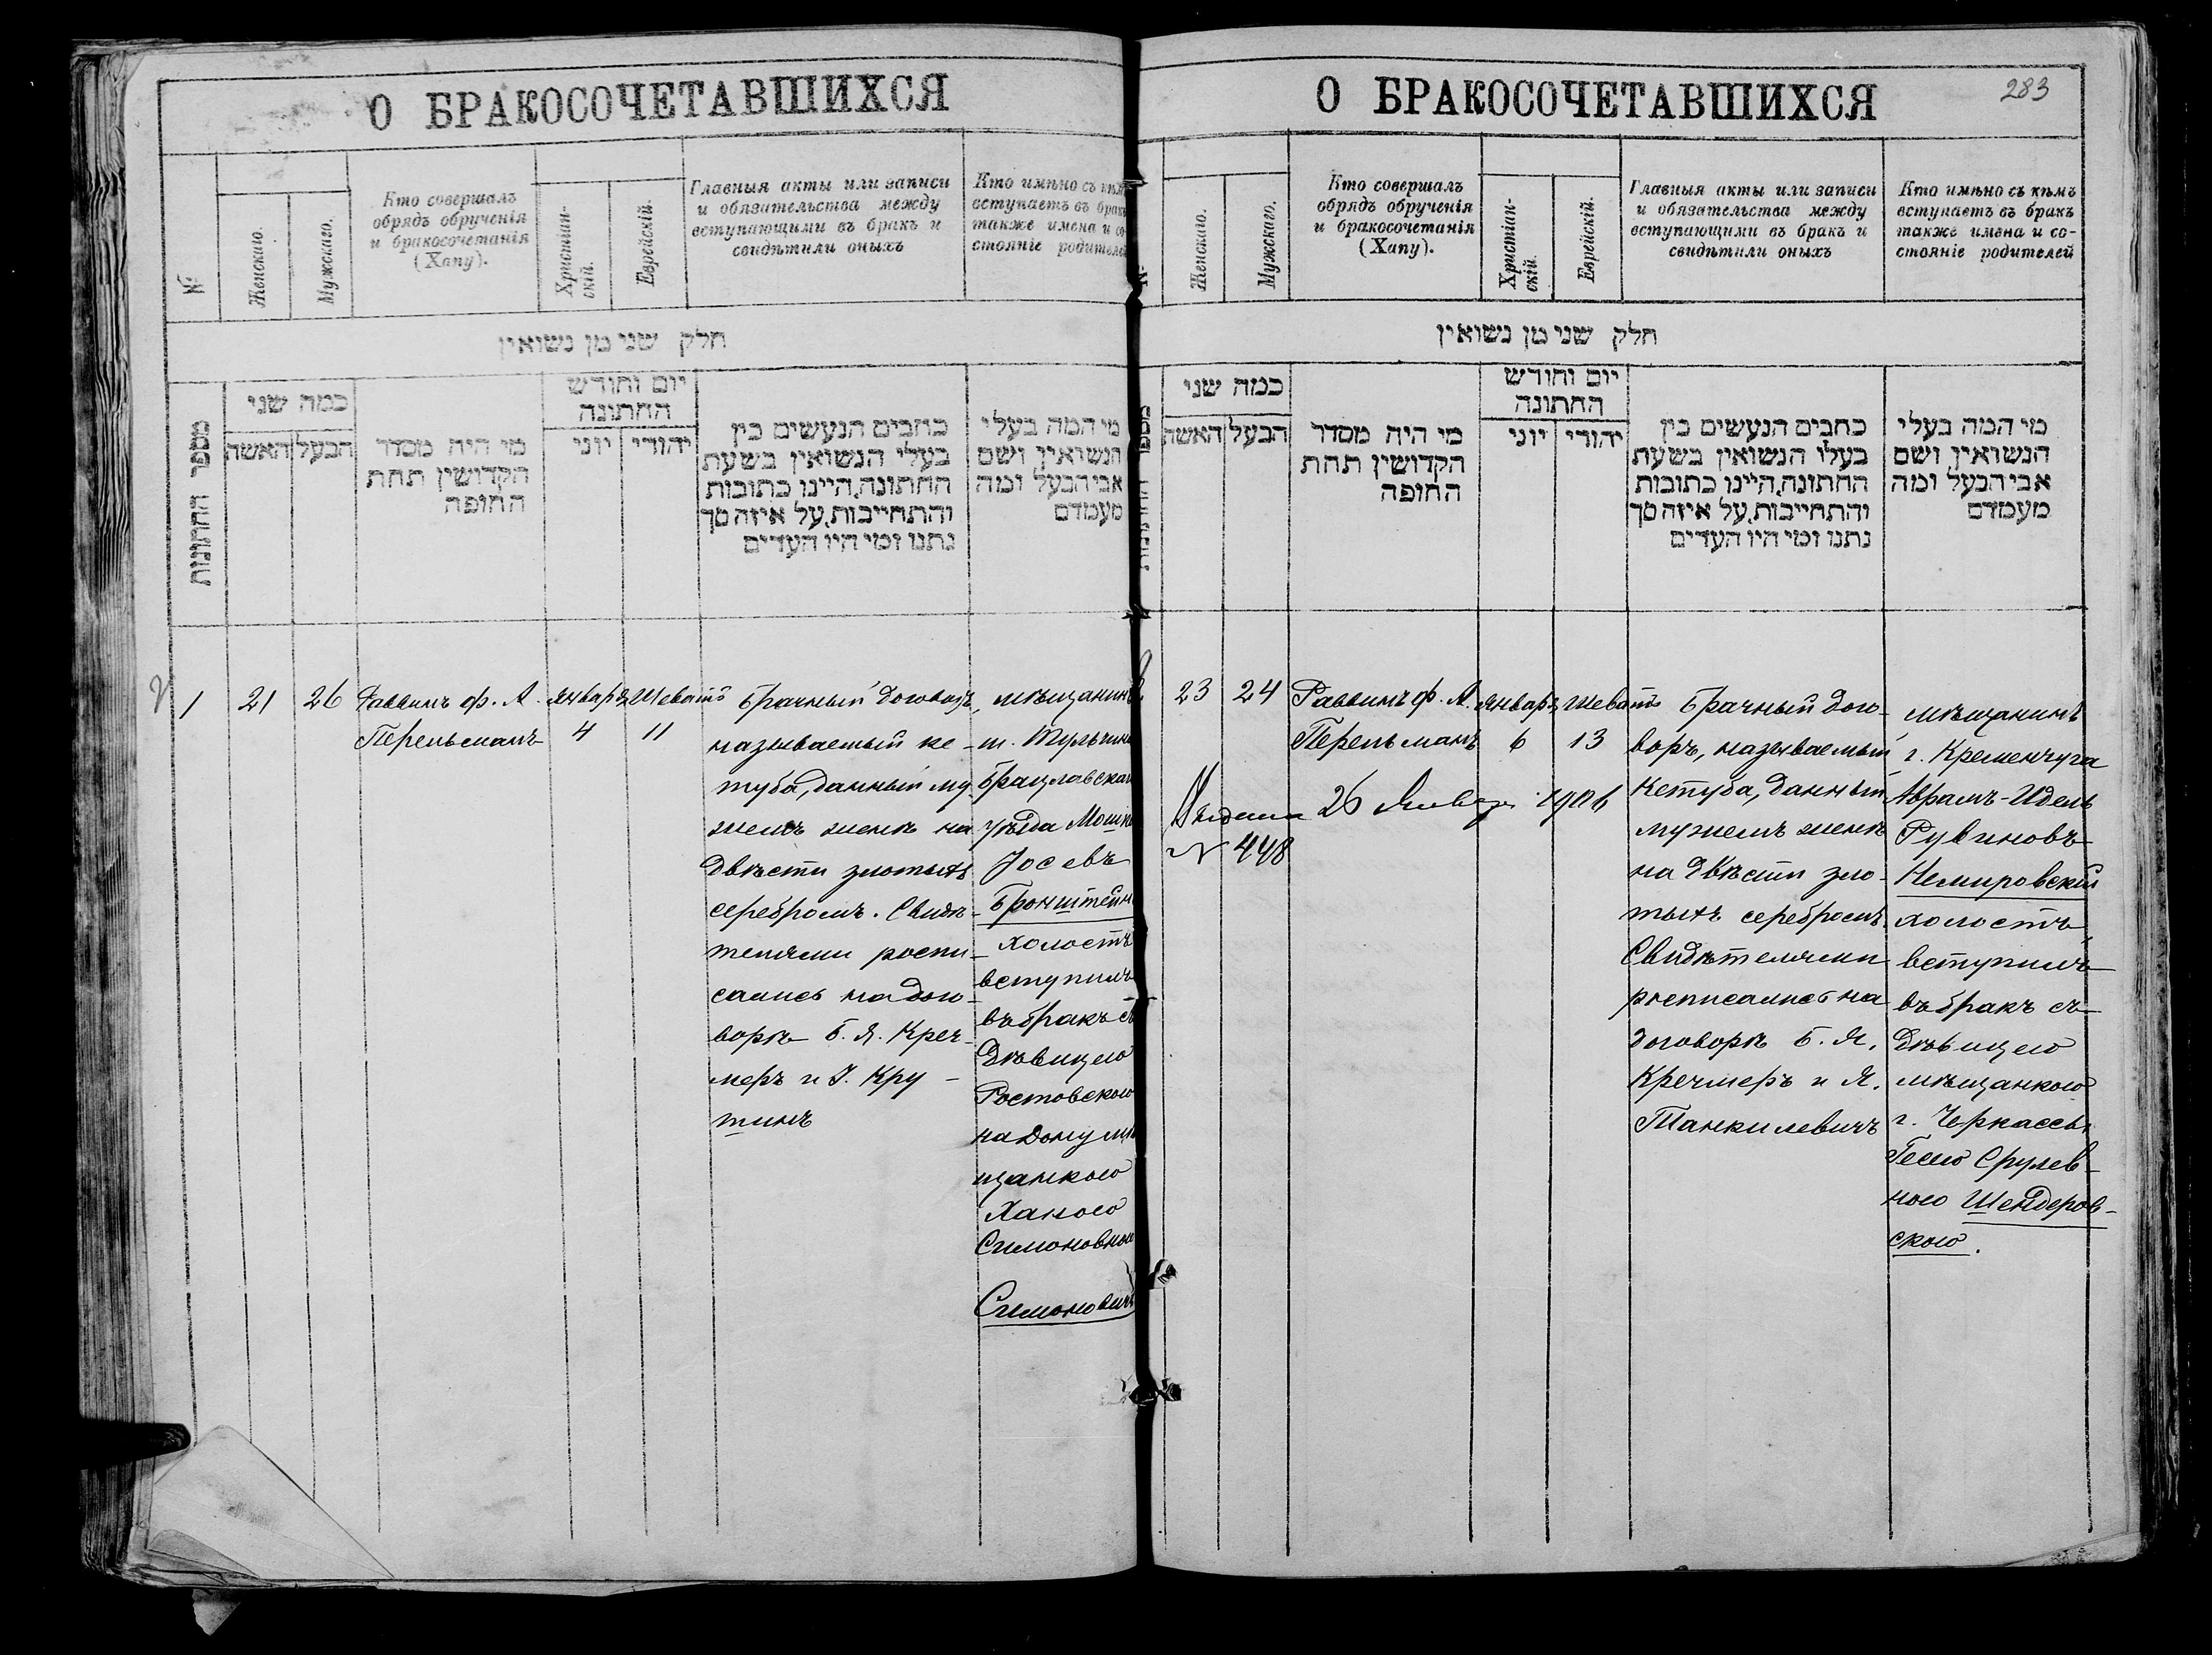 О БРАКОСОЧЕТАВШИХСЯ
№
Женскаго.
Мужскаго.
Кто совершалъ
обрядъ обрученія
и бракосочетанія
(Хапу).
Христіан-
скій.
Еврейскій.
Главныя акты или записи
и обязательства между
вступающими въ бракъ и
свидѣтили оныхъ
Кто имѣно съ кѣмъ
вступаетъ въ бракъ
также имена и со-
стояніе родителей
חלק שני מן נשואין
מספר החתונות
כמה שני
האשה
הבעל
מי היה מסדר
הקדושין תחת
החופה
יום וחודש
החתונה
יוני
יהודי
כתבים הנעשים בין
בעלי הנשואין בשעת
החתונה, היינו כתובות
והתחייבות, על איזה סך
נתנו ומי היו העדים
מי המה בעלי
הנשואין ושם
אבי הבעל ומה
מעמדם
1
21
26
Раввинъ ф. А.
Перельманъ
Январ
4
Шеватъ
11
Брачный договоръ,
называемый ке-
туба, данный му-
жемъ женѣ на
двѣсти злотыхъ
серебромъ. Свидѣ-
телями роспи-
сались на дого-
ворѣ Б. Я. Креч-
меръ и І. Кру-
тинъ
мѣщанинъ
м. Тульчина
Брацлавскаго
уѣзда Мошко
Іосевъ
Бронштейнъ
холостъ
вступилъ
въ бракъ съ
дѣвицею
Ростовскою
на Дону мѣ
щанкою
Ханою
Симоновною
Симоновичъ
О БРАКОСОЧЕТАВШИХСЯ
283
Женскаго.
Мужскаго.
Кто совершалъ
обрядъ обрученія
и бракосочетанія
(Хапу).
Христіан-
скій.
Еврейскій.
Главныя акты или записи
и обязательства между
вступающими въ бракъ и
свидѣтили оныхъ
Кто имѣно съ кѣмъ
вступаетъ въ бракъ
также имена и со-
стояніе родителей
חלק שני מן נשואין
כמה שני
האשה
הבעל
מי היה מסדר
הקדושין תחת
החופה
יום וחודש
החתונה
יוני
יהודי
כתבים הנעשים בין
בעלי הנשואין בשעת
החתונה, היינו כתובות
והתחייבות, על איזה סך
נתנו ומי היו העדים
מי המה בעלי
הנשואין ושם
אבי הבעל ומה
מעמדם
23
24
Раввинъ ф. А.
Перельманъ
Январ
6
Шеватъ
13
Выдана 26 Январ 1906
№ 448
Брачный дого-
воръ, называемый
Кетуба, данный
мужемъ женѣ
на двѣсти зло-
тыхъ серебромъ.
Свидѣтелями
росписались на
договорѣ Б. Я.
Кречмеръ и Я.
Танкилевичъ
мѣщанинъ
г. Кременчуга
Аврамъ-Идель
Рувиновъ
Немировскій
холостъ,
вступилъ
въ бракъ съ
дѣвицею
мѣщанкою
г. Черкассы
Гесею Срулев-
ною Шендеров-
скою.